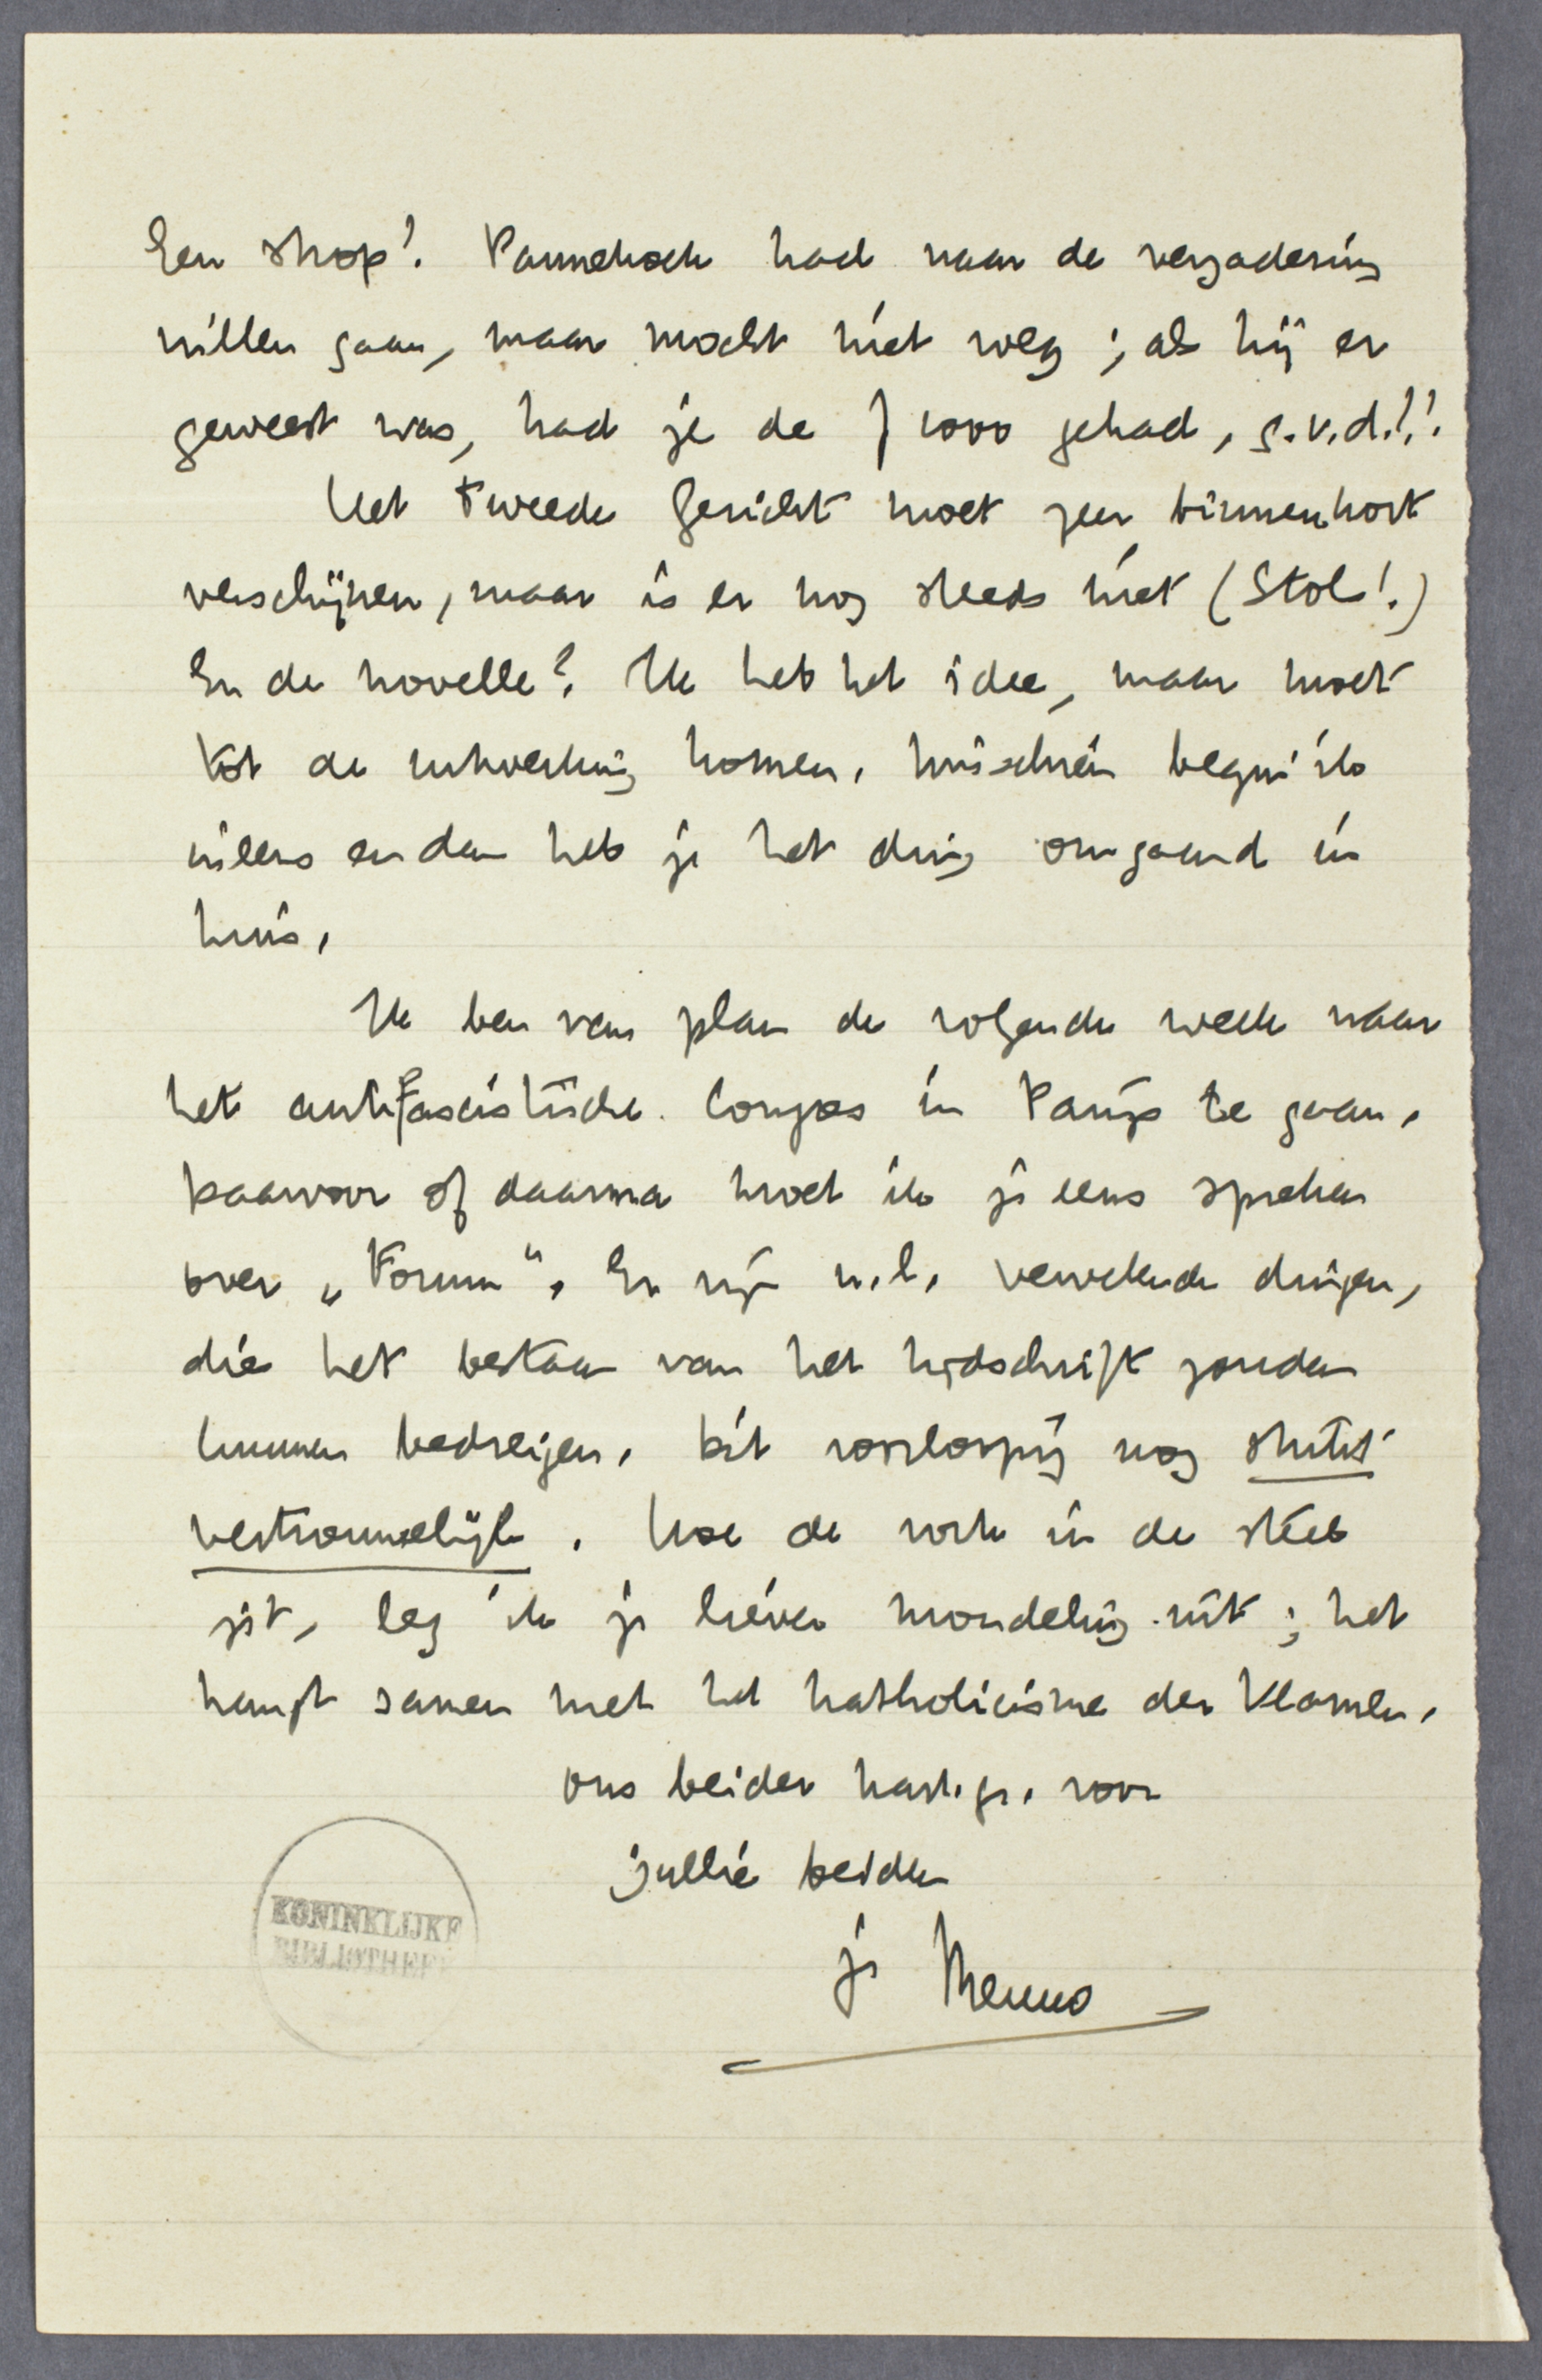 Een strop! Pannekoek had naar de vergadering
willen gaan, maar mocht niet weg; als hij er
geweest was, had je de ƒ 1000 gehad, g.v.d.!!
Het Tweede Gezicht moet zeer binnenkort
verschijnen, maar is er nog steeds niet (Stols!)
En de novelle? Ik heb het idee, maar moet
tot de uitwerking komen. Misschien begin ik
ineens en dan heb je het ding omgaand in
huis.
Ik ben van plan de volgende week naar
het antifascistische Congres in Parijs te gaan.
Daarvoor of daarna moet ik je eens spreken
over „Forum". Er zijn n.l. vervelende dingen,
die het bestaan van het tijdschrift zouden
kunnen bedreigen. Dit voorloopig nog strikt
vertrouwelijk. Hoe de vork in de steel
zit, leg ik je liever mondeling uit; het
hangt samen met het katholicisme der Vlamen.
Ons beider hart. gr. voor
jullie beiden
je Menno
KONINKLIJKE
BIBLIOTHEEK